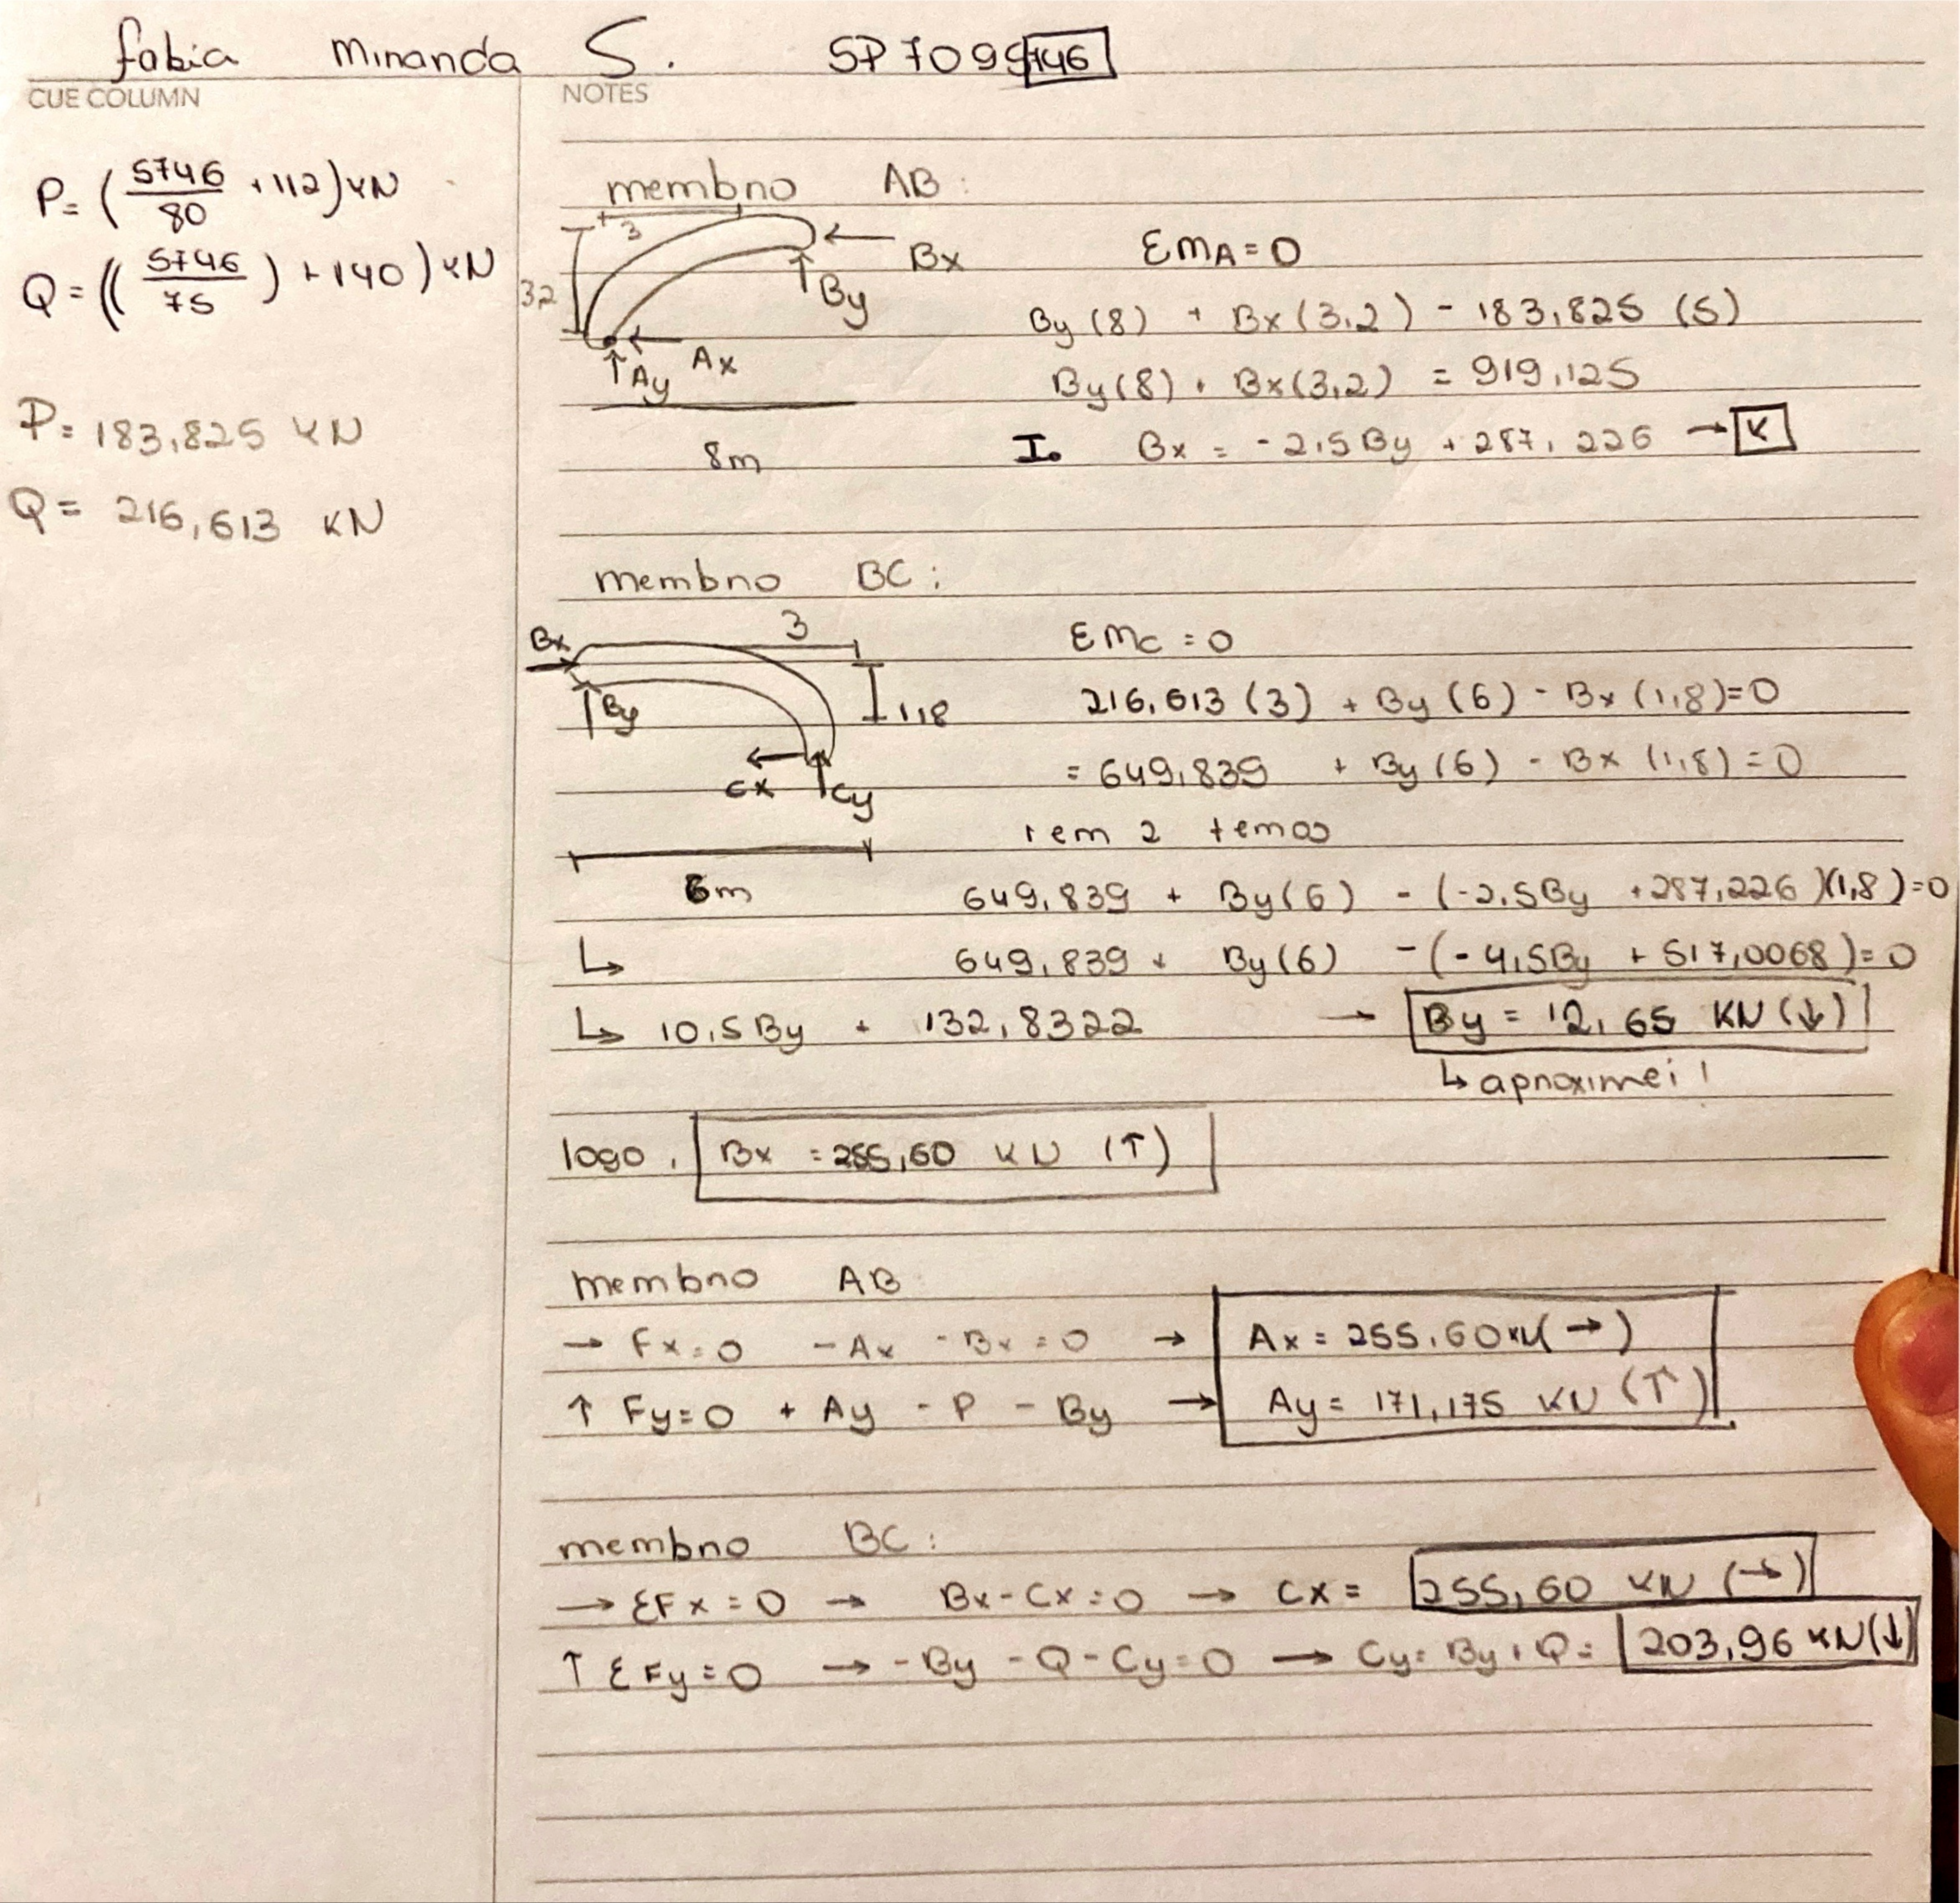 fabia miranda S. SP 7099746
CUE COLUMN
NOTES
P= (5746/80 + 112) KN
Q = ((5746/75) + 140) KN
P= 183,825 KN
Q = 216,613 KN
membro AB:
3
32
Bx
By
Ax
Ay
8m
ƐMA = 0
By (8) + Bx (3,2) - 183,825 (5)
By(8) + Bx(3,2) = 919,125
I. Bx = -2,5By + 287,226 → K
membro BC:
Bx
3
By
1,8
Cx
Cy
6m
ƐMC = 0
216,613 (3) + By (6) - Bx (1,8)=0
= 649,839 + By (6) - Bx (1,8) = 0
temos
649,839 + By(6) - (-2,5By + 287,226)(1,8)=0
↳ 649,839 + By(6) - (-4,5By + 517,0068)=0
↳ 10,5By + 132,8322 → By = 12,65 KN (↓)
↳ aproximei!
logo, Bx = 255,60 KN (↑)
membro AB
→ Fx=0 -Ax -Bx=0 → Ax = 255,60KN(→)
↑ Fy=0 + Ay - P - By → Ay = 171,175 KN (↑)
membro BC:
→ ƐFx=0 → Bx-Cx=0 → Cx = 255,60 KN (→)
↑ ƐFy=0 → -By -Q-Cy=0 → Cy= By+Q= 203,96 KN(↓)